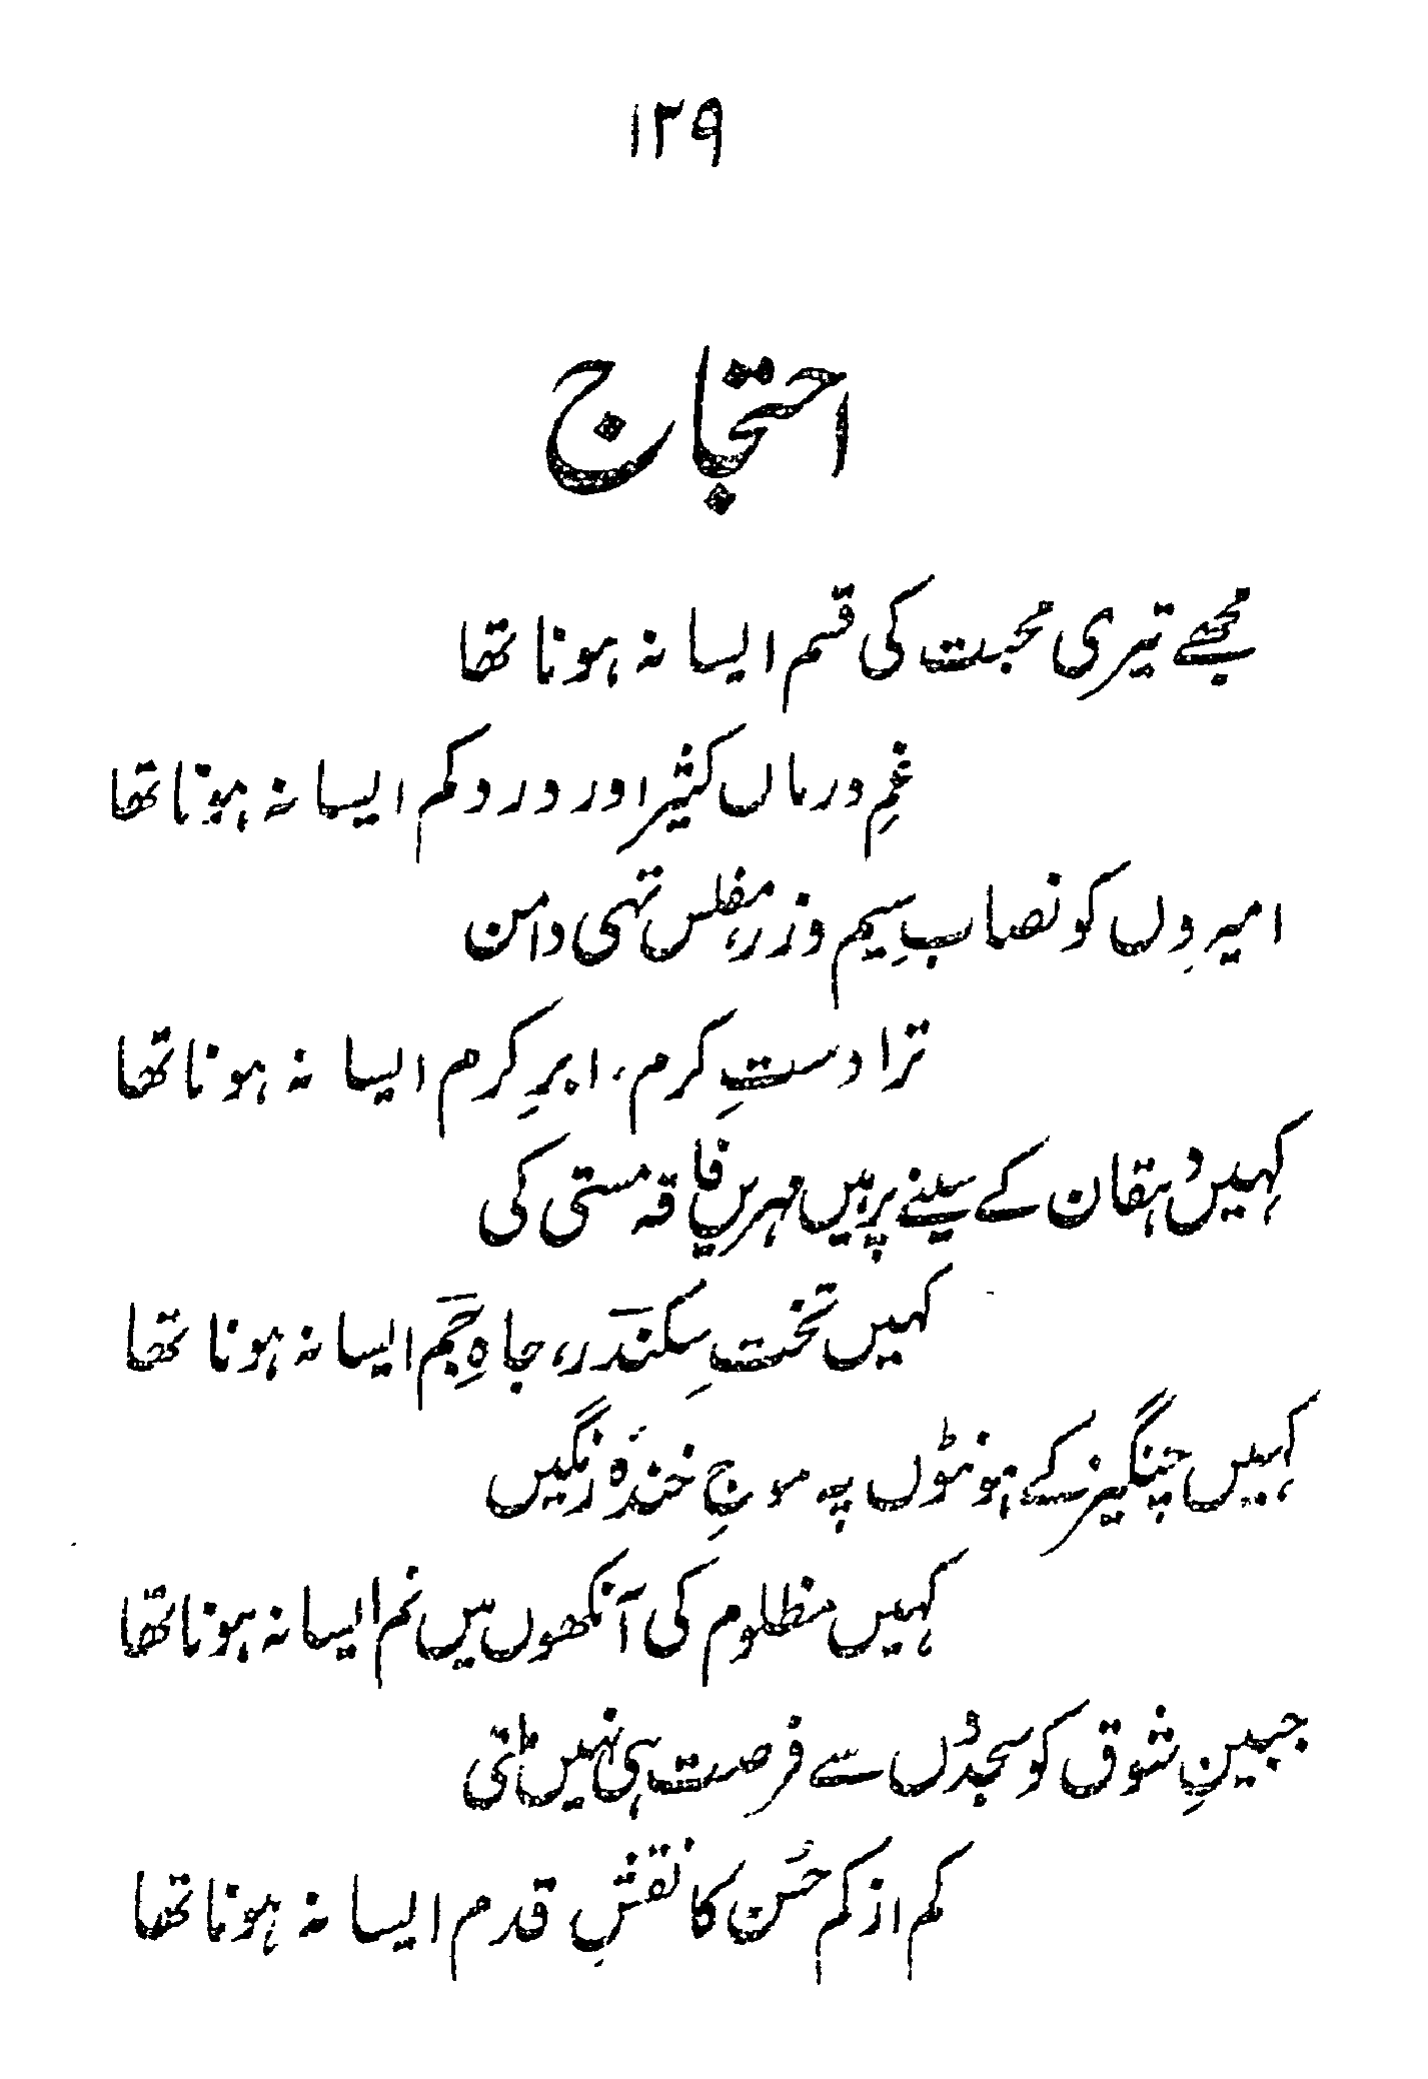 ۱۲۹
احتجاج
مجھے تیری محبت کی قسم ایسا نہ ہونا تھا
غمِ درماں کثیر اور درد کم ایسا نہ ہونا تھا
امیروں کو نصابِ سیم و زر، مفلس تہی دامن
ترا دستِ کرم، ابرِ کرم ایسا نہ ہونا تھا
کہیں دُہقان کے سینے پر ہیں مہریں فاقہ مستی کی
کہیں تختِ سِکندَر، جاہِ جَم ایسا نہ ہونا تھا
کہیں چنگیز کے ہونٹوں پہ موجِ خندۂ رنگیں
کہیں مظلوم کی آنکھوں میں نم ایسا نہ ہونا تھا
جبینِ شوق کو سجدوں سے فرصت ہی نہیں ملتی
کم از کم حُسن کا نقشِ قدم ایسا نہ ہونا تھا